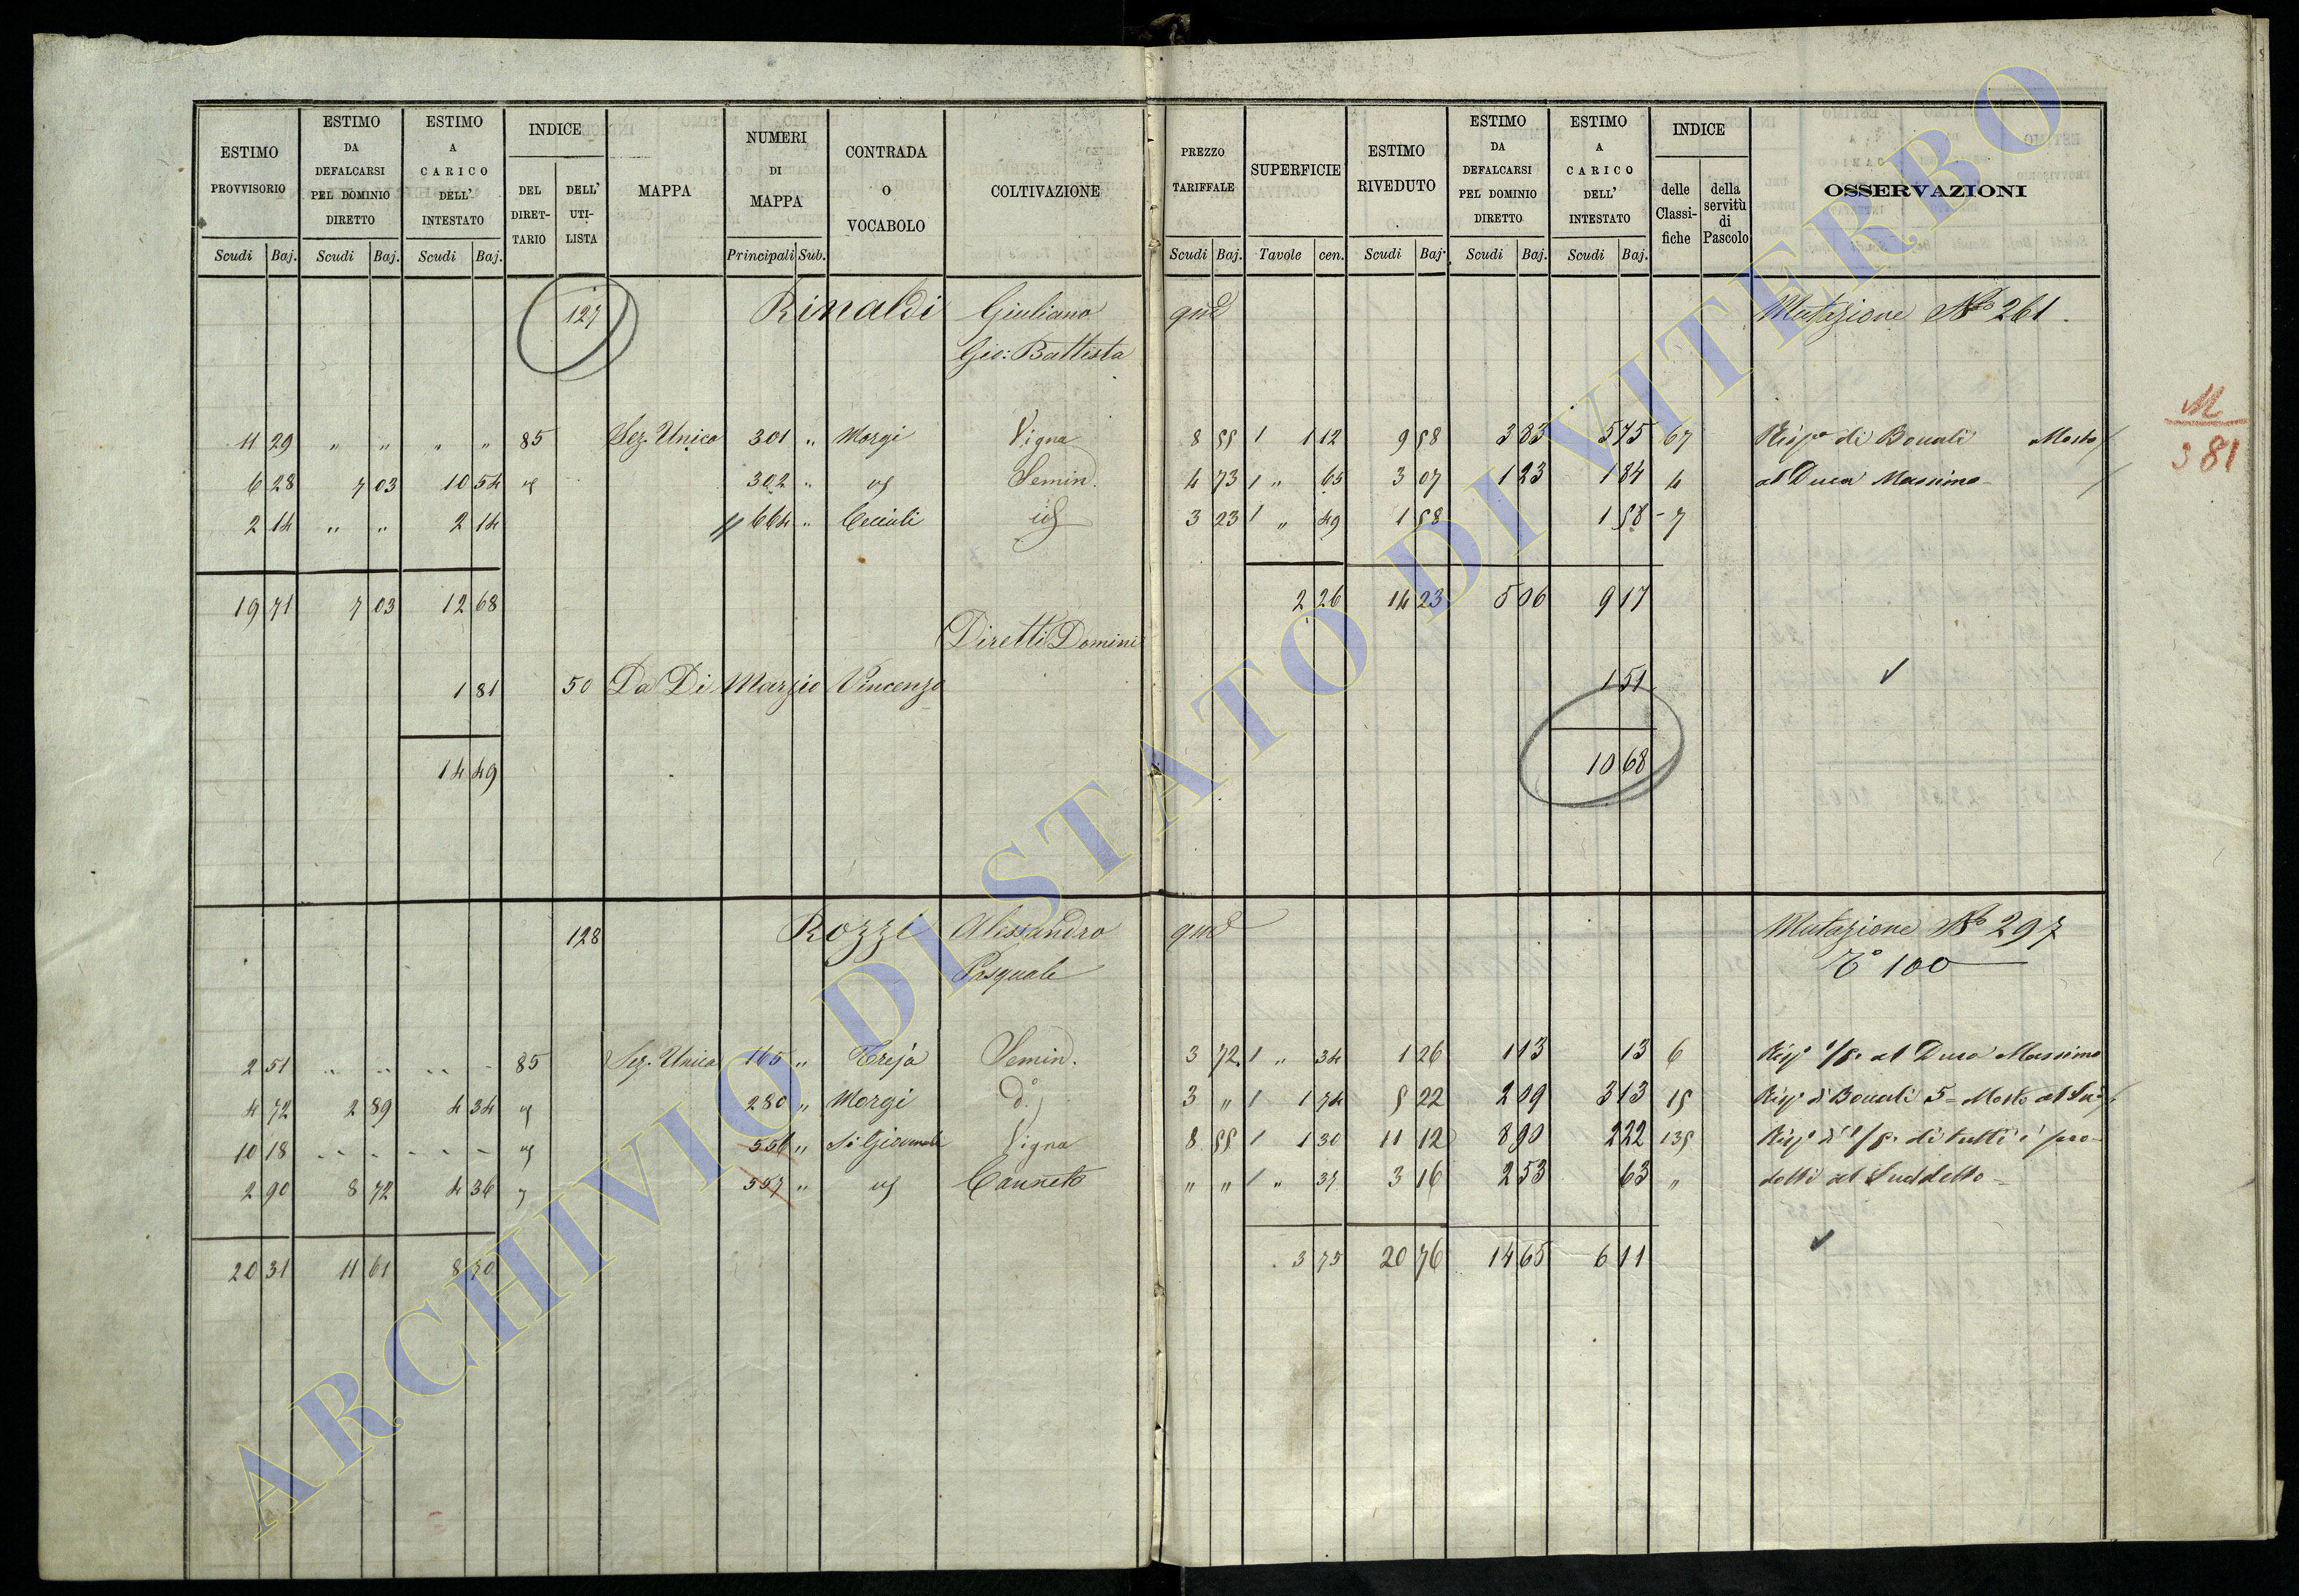 ESTIMO PROVVISORIO Scudi Baj. | ESTIMO DA DEFALCARSI PEL DOMINIO DIRETTO Scudi Baj. | ESTIMO A CARICO DELL' INTESTATO Scudi Baj. | INDICE DEL DIRETTARIO DELL' UTILISTA | MAPPA | NUMERI DI MAPPA Principali Sub. | CONTRADA O VOCABOLO | COLTIVAZIONE | PREZZO TARIFFALE Scudi Baj. | SUPERFICIE Tavole cen. | ESTIMO RIVEDUTO Scudi Baj. | ESTIMO DA DEFALCARSI PEL DOMINIO DIRETTO Scudi Baj. | ESTIMO A CARICO DELL' INTESTATO Scudi Baj. | INDICE delle Classifiche della servitù di Pascolo | OSSERVAZIONI
127 Rinaldi Giuliano qm Mutazione No 261.
Gio: Battista
11 29 " " " " 85 Sez. Unica 301 " Morgi Vigna 8 55 1 1 12 9 58 3 83 5 75 67 di Mosto
6 28 7 03 10 54 302 " Semin. 4 73 1 " 65 3 07 1 23 1 84 4 al Duca Massimo
2 14 " " 2 14 664 " id 3 23 1 " 49 1 58 1 58 7
19 71 7 03 12 68 2 26 14 23 5 06 9 17
Diretti Domini
1 81 50 Da Di Marzio Vincenzo 1 51
14 49 10 68
128 Rozzi Alessandro qm Mutazione No 297
Pasquale To 100
2 51 85 Sez. Unica 165 " Treja Semin. 3 72 1 " 34 1 26 1 13 13 6 al Duca Massimo
4 72 2 89 4 34 280 " Morgi do 3 " 1 1 74 5 22 2 09 3 13 15 di 5 Mosto al
10 18 556 " Vigna 8 55 1 1 30 11 12 8 90 2 22 135 di tutti i pro-
2 90 8 72 4 36 557 " Canneto " " 1 " 37 3 16 2 53 63 " dotti al Suddetto
20 31 11 61 8 70 3 75 20 76 14 65 6 11
M
381
ARCHIVIO DI STATO DI VITERBO